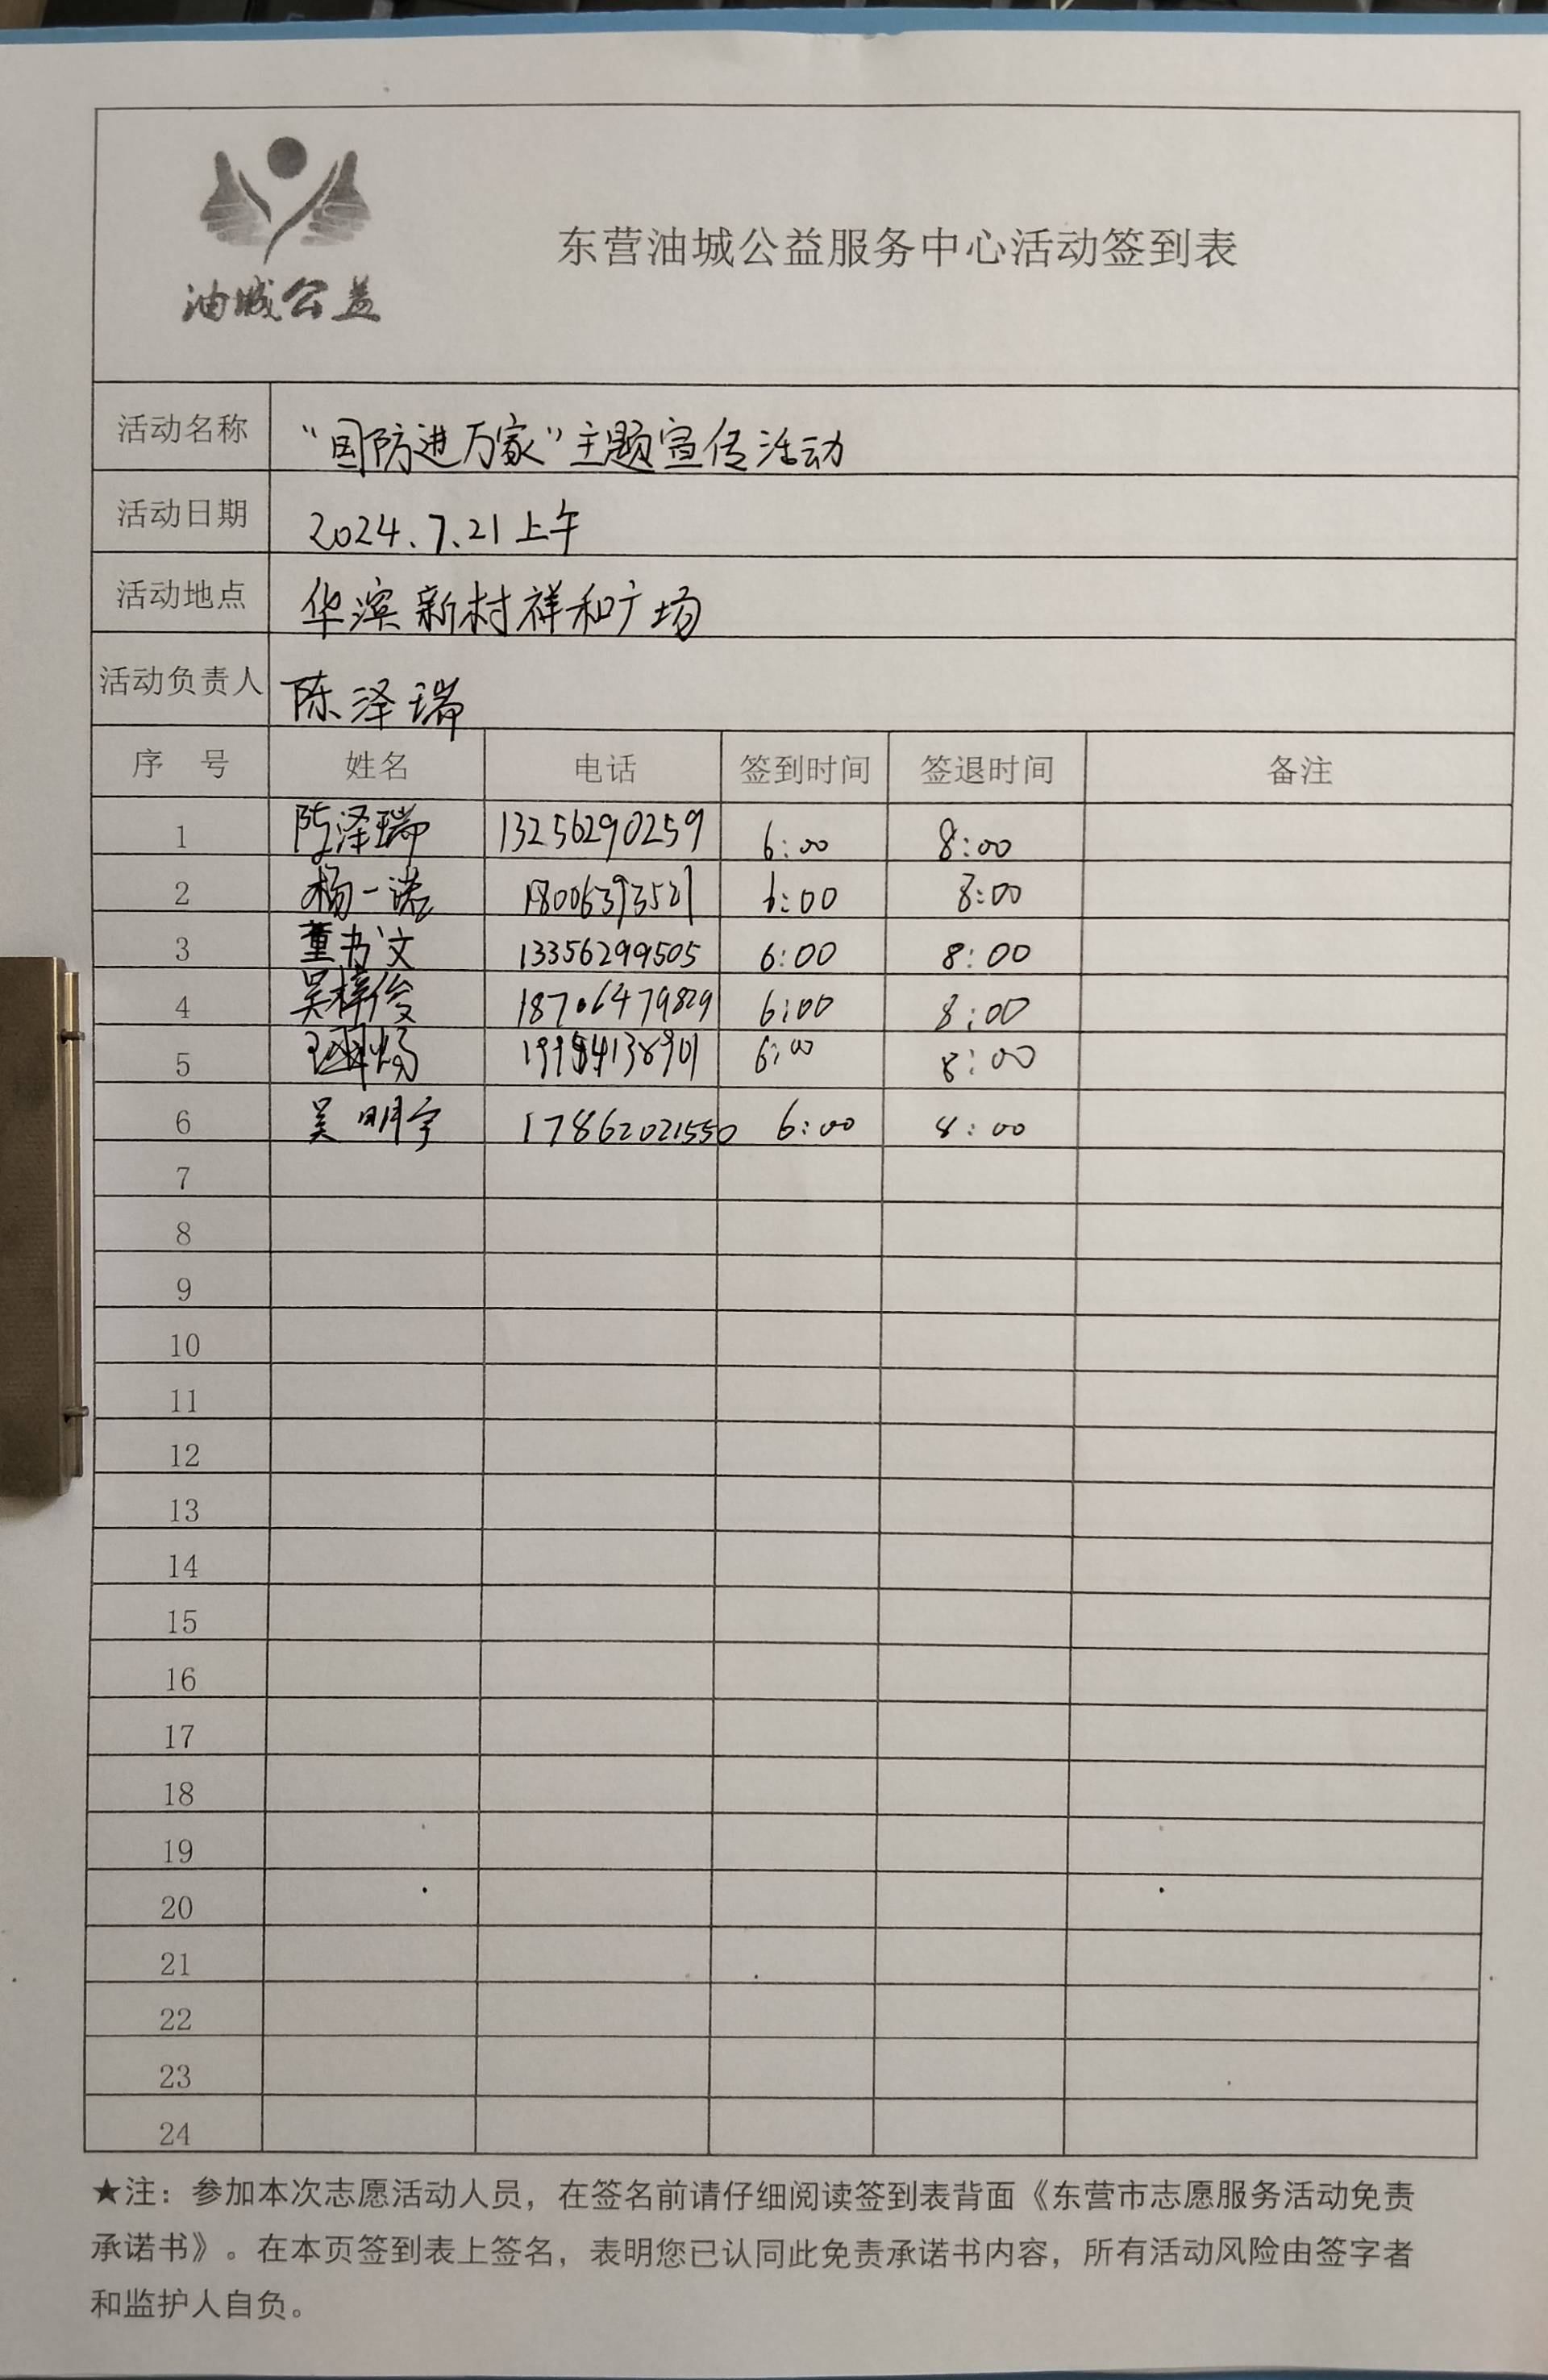 油城公益
东营油城公益服务中心活动签到表
活动名称 “国防进万家”主题宣传活动
活动日期 2024.7.21上午
活动地点 华滨新村祥和广场
活动负责人 陈泽瑞
序 号 姓名 电话 签到时间 签退时间 备注
1 陈泽瑞 13256290259 6:00 8:00
2 杨一诺 18006393521 6:00 8:00
3 董书文 13356299505 6:00 8:00
4 吴梓俊 18706479829 6:00 8:00
5 6:00 8:00
6 吴明宇 17862021550 6:00 8:00
7
8
9
10
11
12
13
14
15
16
17
18
19
20
21
22
23
24
★注：参加本次志愿活动人员，在签名前请仔细阅读签到表背面《东营市志愿服务活动免责
承诺书》。在本页签到表上签名，表明您已认同此免责承诺书内容，所有活动风险由签字者
和监护人自负。